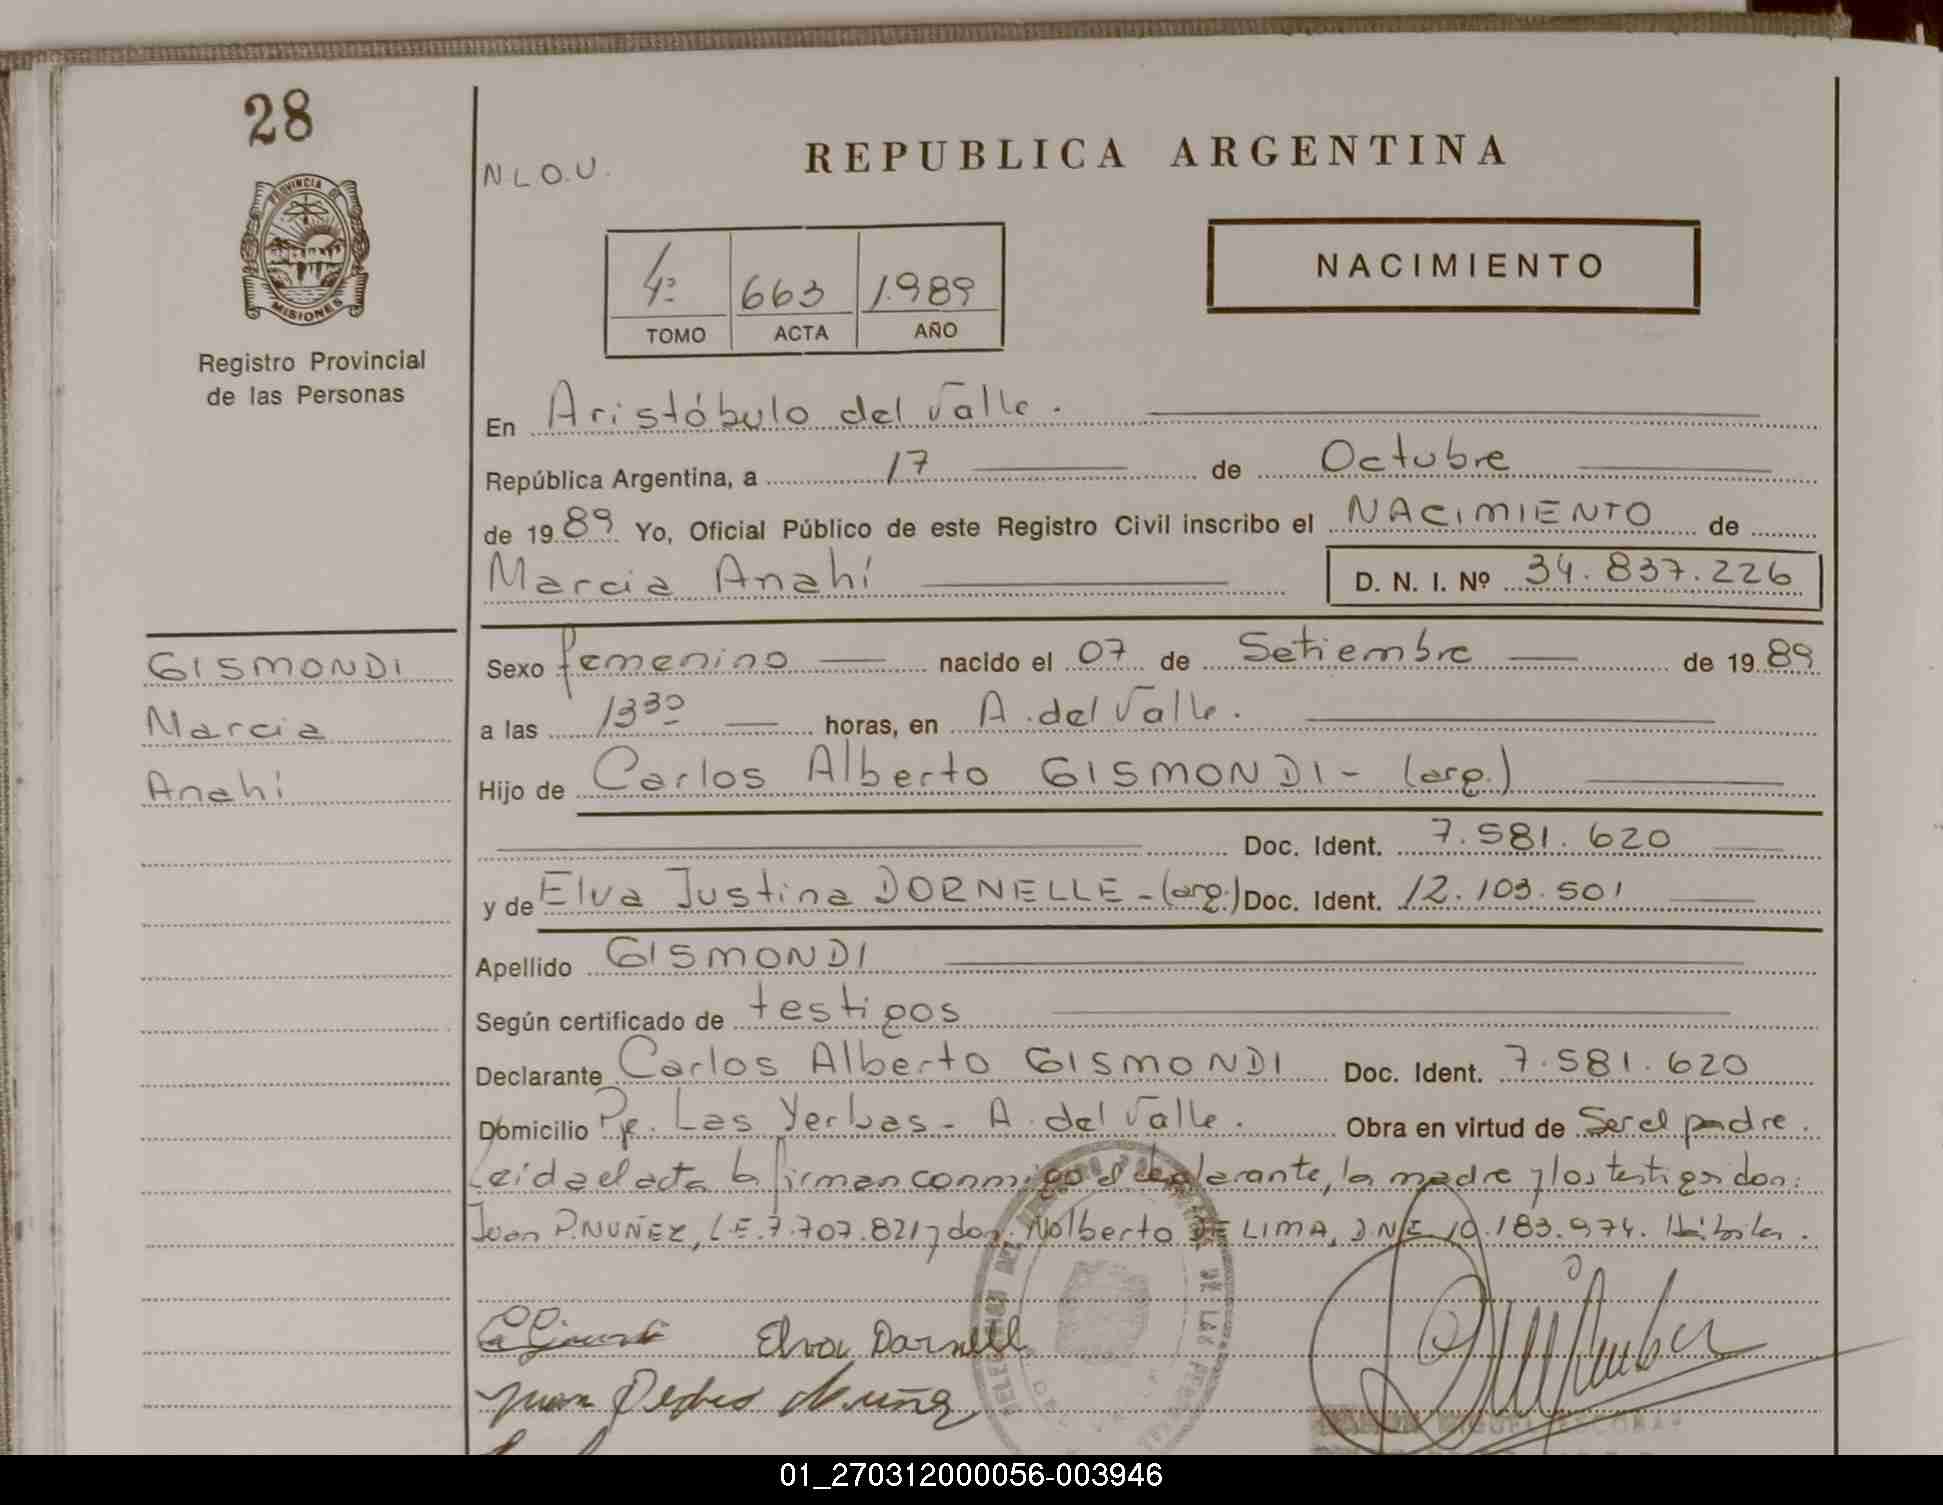 28
N L O. U.
REPUBLICA ARGENTINA
PROVINCIA DE
MISIONES
Registro Provincial
de las Personas
4º 663 1.989
TOMO ACTA AÑO
NACIMIENTO
En Aristóbulo del Valle.
República Argentina, a 17 de Octubre
de 19 89 Yo, Oficial Público de este Registro Civil inscribo el NACIMIENTO de
Marcia Anahí D. N. I. Nº 34.837.226
GISMONDI
Marcia
Anahí
Sexo femenino nacido el 07 de Setiembre de 19 89
a las 13 30 horas, en A. del Valle.
Hijo de Carlos Alberto GISMONDI - (arg.)
Doc. Ident. 7.581.620
y de Elva Justina DORNELLE - (arg.) Doc. Ident. 12.103.501
Apellido GISMONDI
Según certificado de testigos
Declarante Carlos Alberto GISMONDI Doc. Ident. 7.581.620
Domicilio Pje. Las Yerbas - A. del Valle. Obra en virtud de Ser el padre.
Leida el acta la firman conmigo el declarante, la madre y los testigos don:
Juan P. NUÑEZ, L.E. 7.707.821 y don Nolberto DE LIMA, D.N.I. 10.183.974.
Elva Dornelle
Juan Pedro Nuñez
01_270312000056-003946